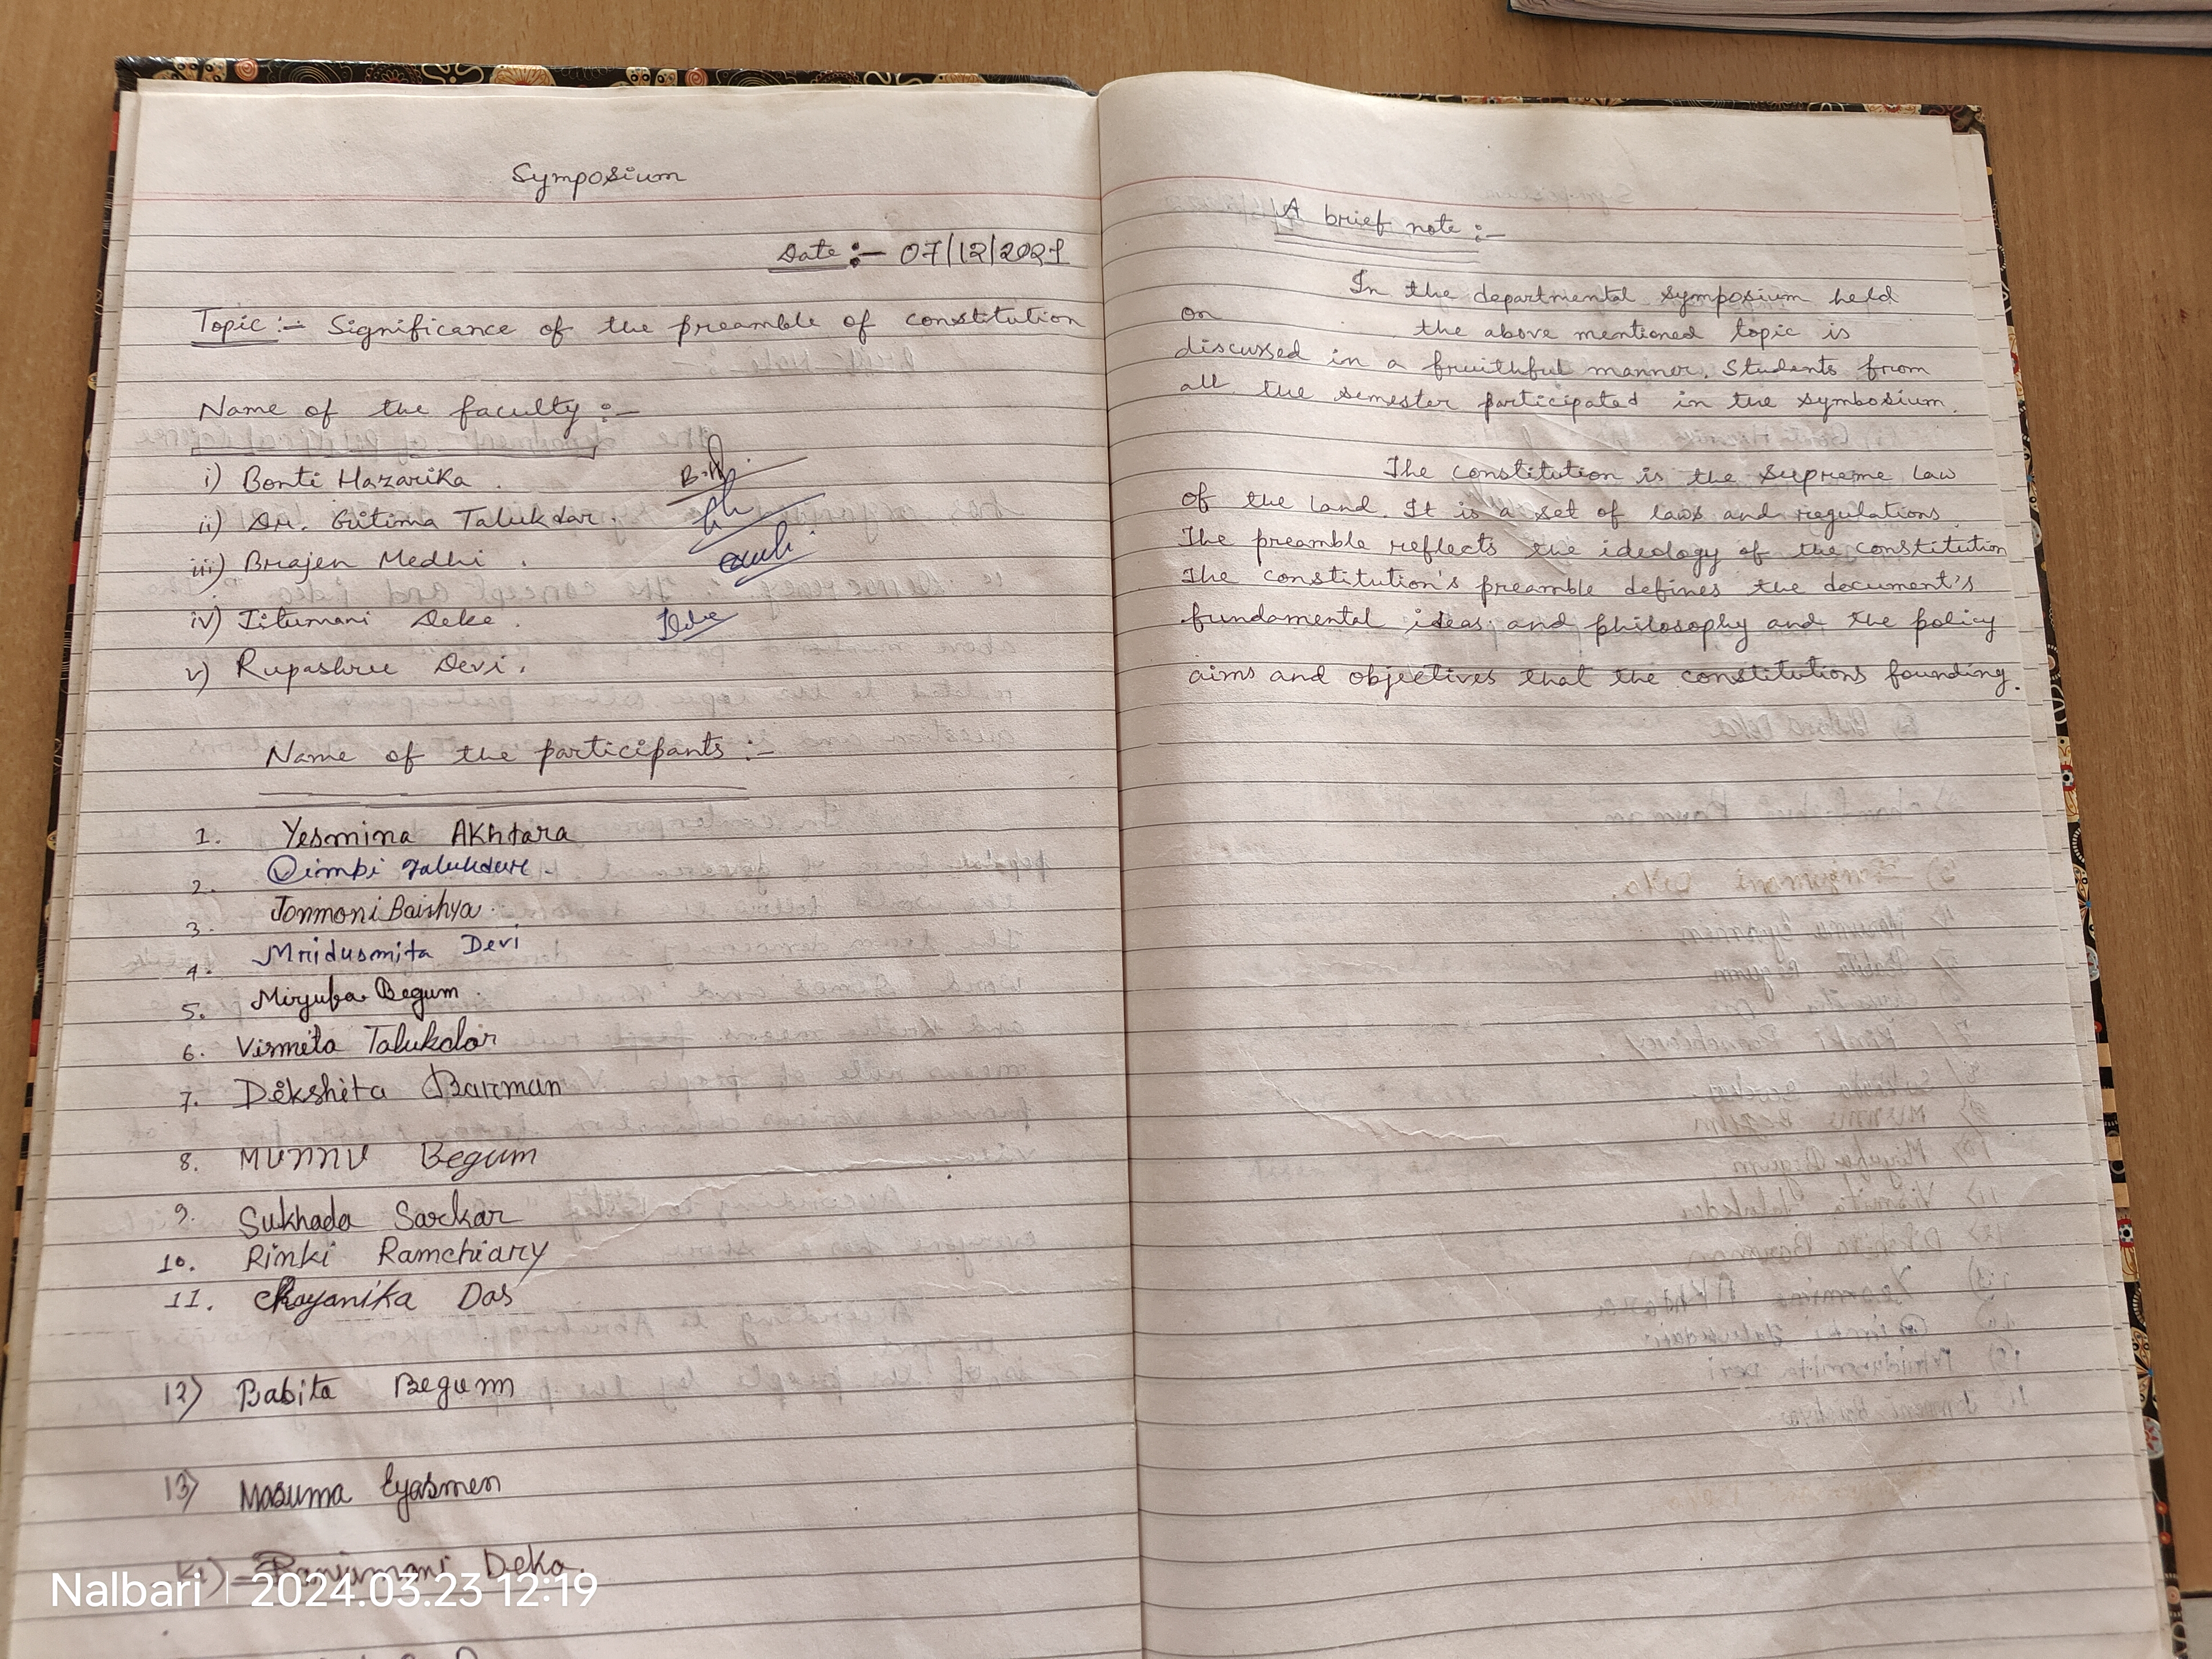 Symposium
Date :- 07/12/2021
Topic :- Significance of the preamble of constitution
Name of the faculty :-
i) Bonti Hazarika.
B.H.
ii) Dr. Gitima Talukdar.
iii) Brajen Medhi.
iv) Jitumani Deke.
v) Rupashree Devi.
Name of the participants :-
1. Yesmina Akhtara
2. Dimpi Talukdar.
3. Jonmoni Baishya.
4. Mridusmita Devi
5. Miryuba Begum.
6. Vismita Talukdar
7. Dikshita Barman
8. Munnu Begum
9. Sukhada Sarkar
10. Rinki Ramchiary
11. Chayanika Das
12) Babita Begum
13) Masuma Eyasmen
Deka.
Nalbari | 2024.03.23 12:19
A brief note :-
In the departmental symposium held
on the above mentioned topic is
discussed in a fruithful manner. Students from
all the semester participated in the symbosium.
The constitution is the supreme law
of the land. It is a set of laws and regulations.
The preamble reflects the ideology of the constitution
The constitution's preamble defines the document's
fundamental ideas and philosophy and the policy
aims and objectives that the constitutions founding.